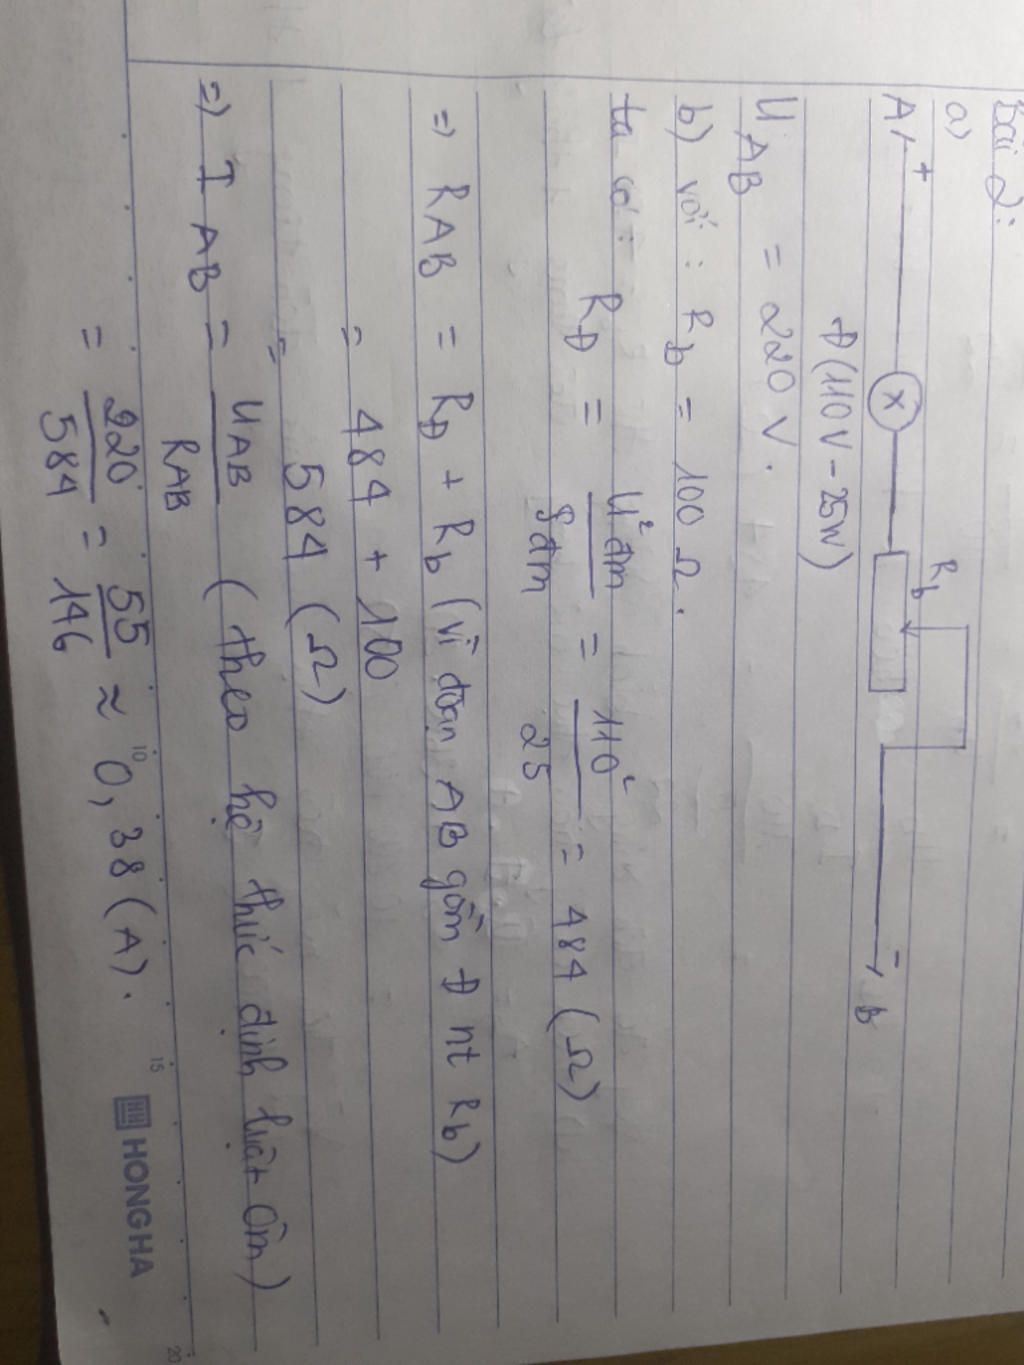 Bài 2:
a)
A + Rb - B
Đ(110V - 25W)
UAB = 220 V.
b) với : Rb = 100 Ω.
ta có : RĐ = U²đm / Pđm = 110² / 25 = 484 (Ω)
=> RAB = RĐ + Rb (vì đoạn AB gồm Đ nt Rb)
= 484 + 100
= 584 (Ω)
=> IAB = UAB / RAB (theo hệ thức định luật Ôm)
= 220 / 584 = 55 / 146 ≈ 0,38 (A).
10 15 20
HONG HA